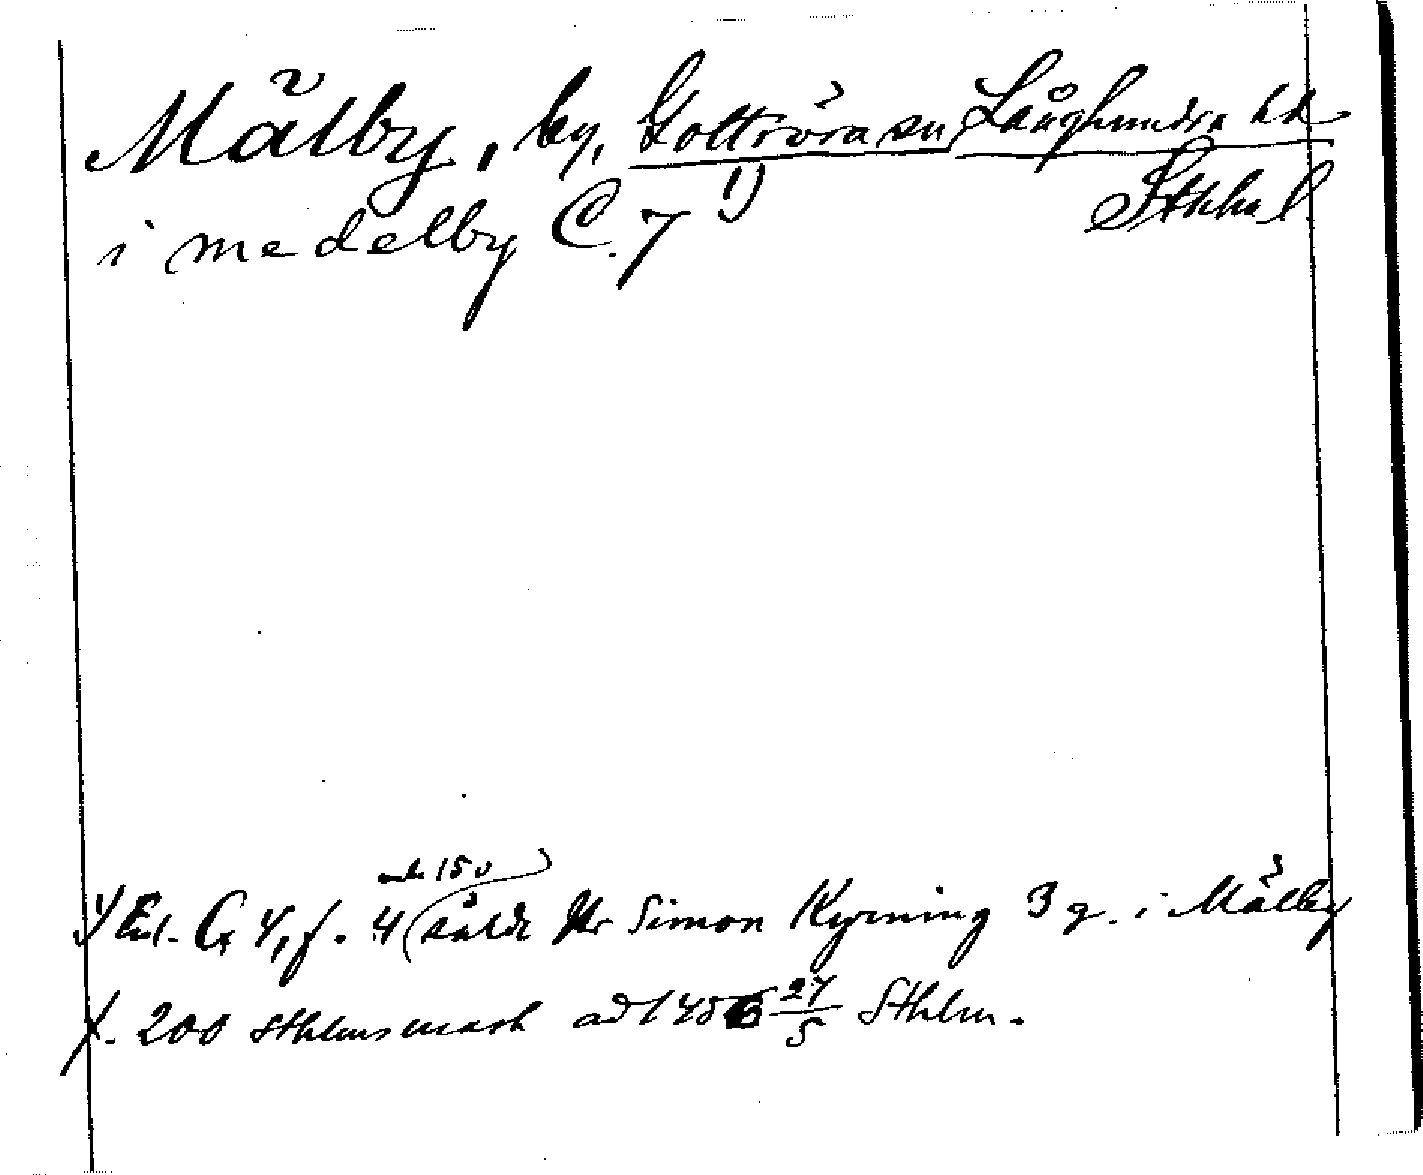 Mälby, by, Gottröra sn, Långhundra hd
i medelby C. 7 1) Sthlms l
och 150
1) Enl. G 4, f. 4 (sålde Hr Simon Kyrning 3 g. i Mälby
f. 200 Sthlmsmark ad 1456 27/5 Sthlm.